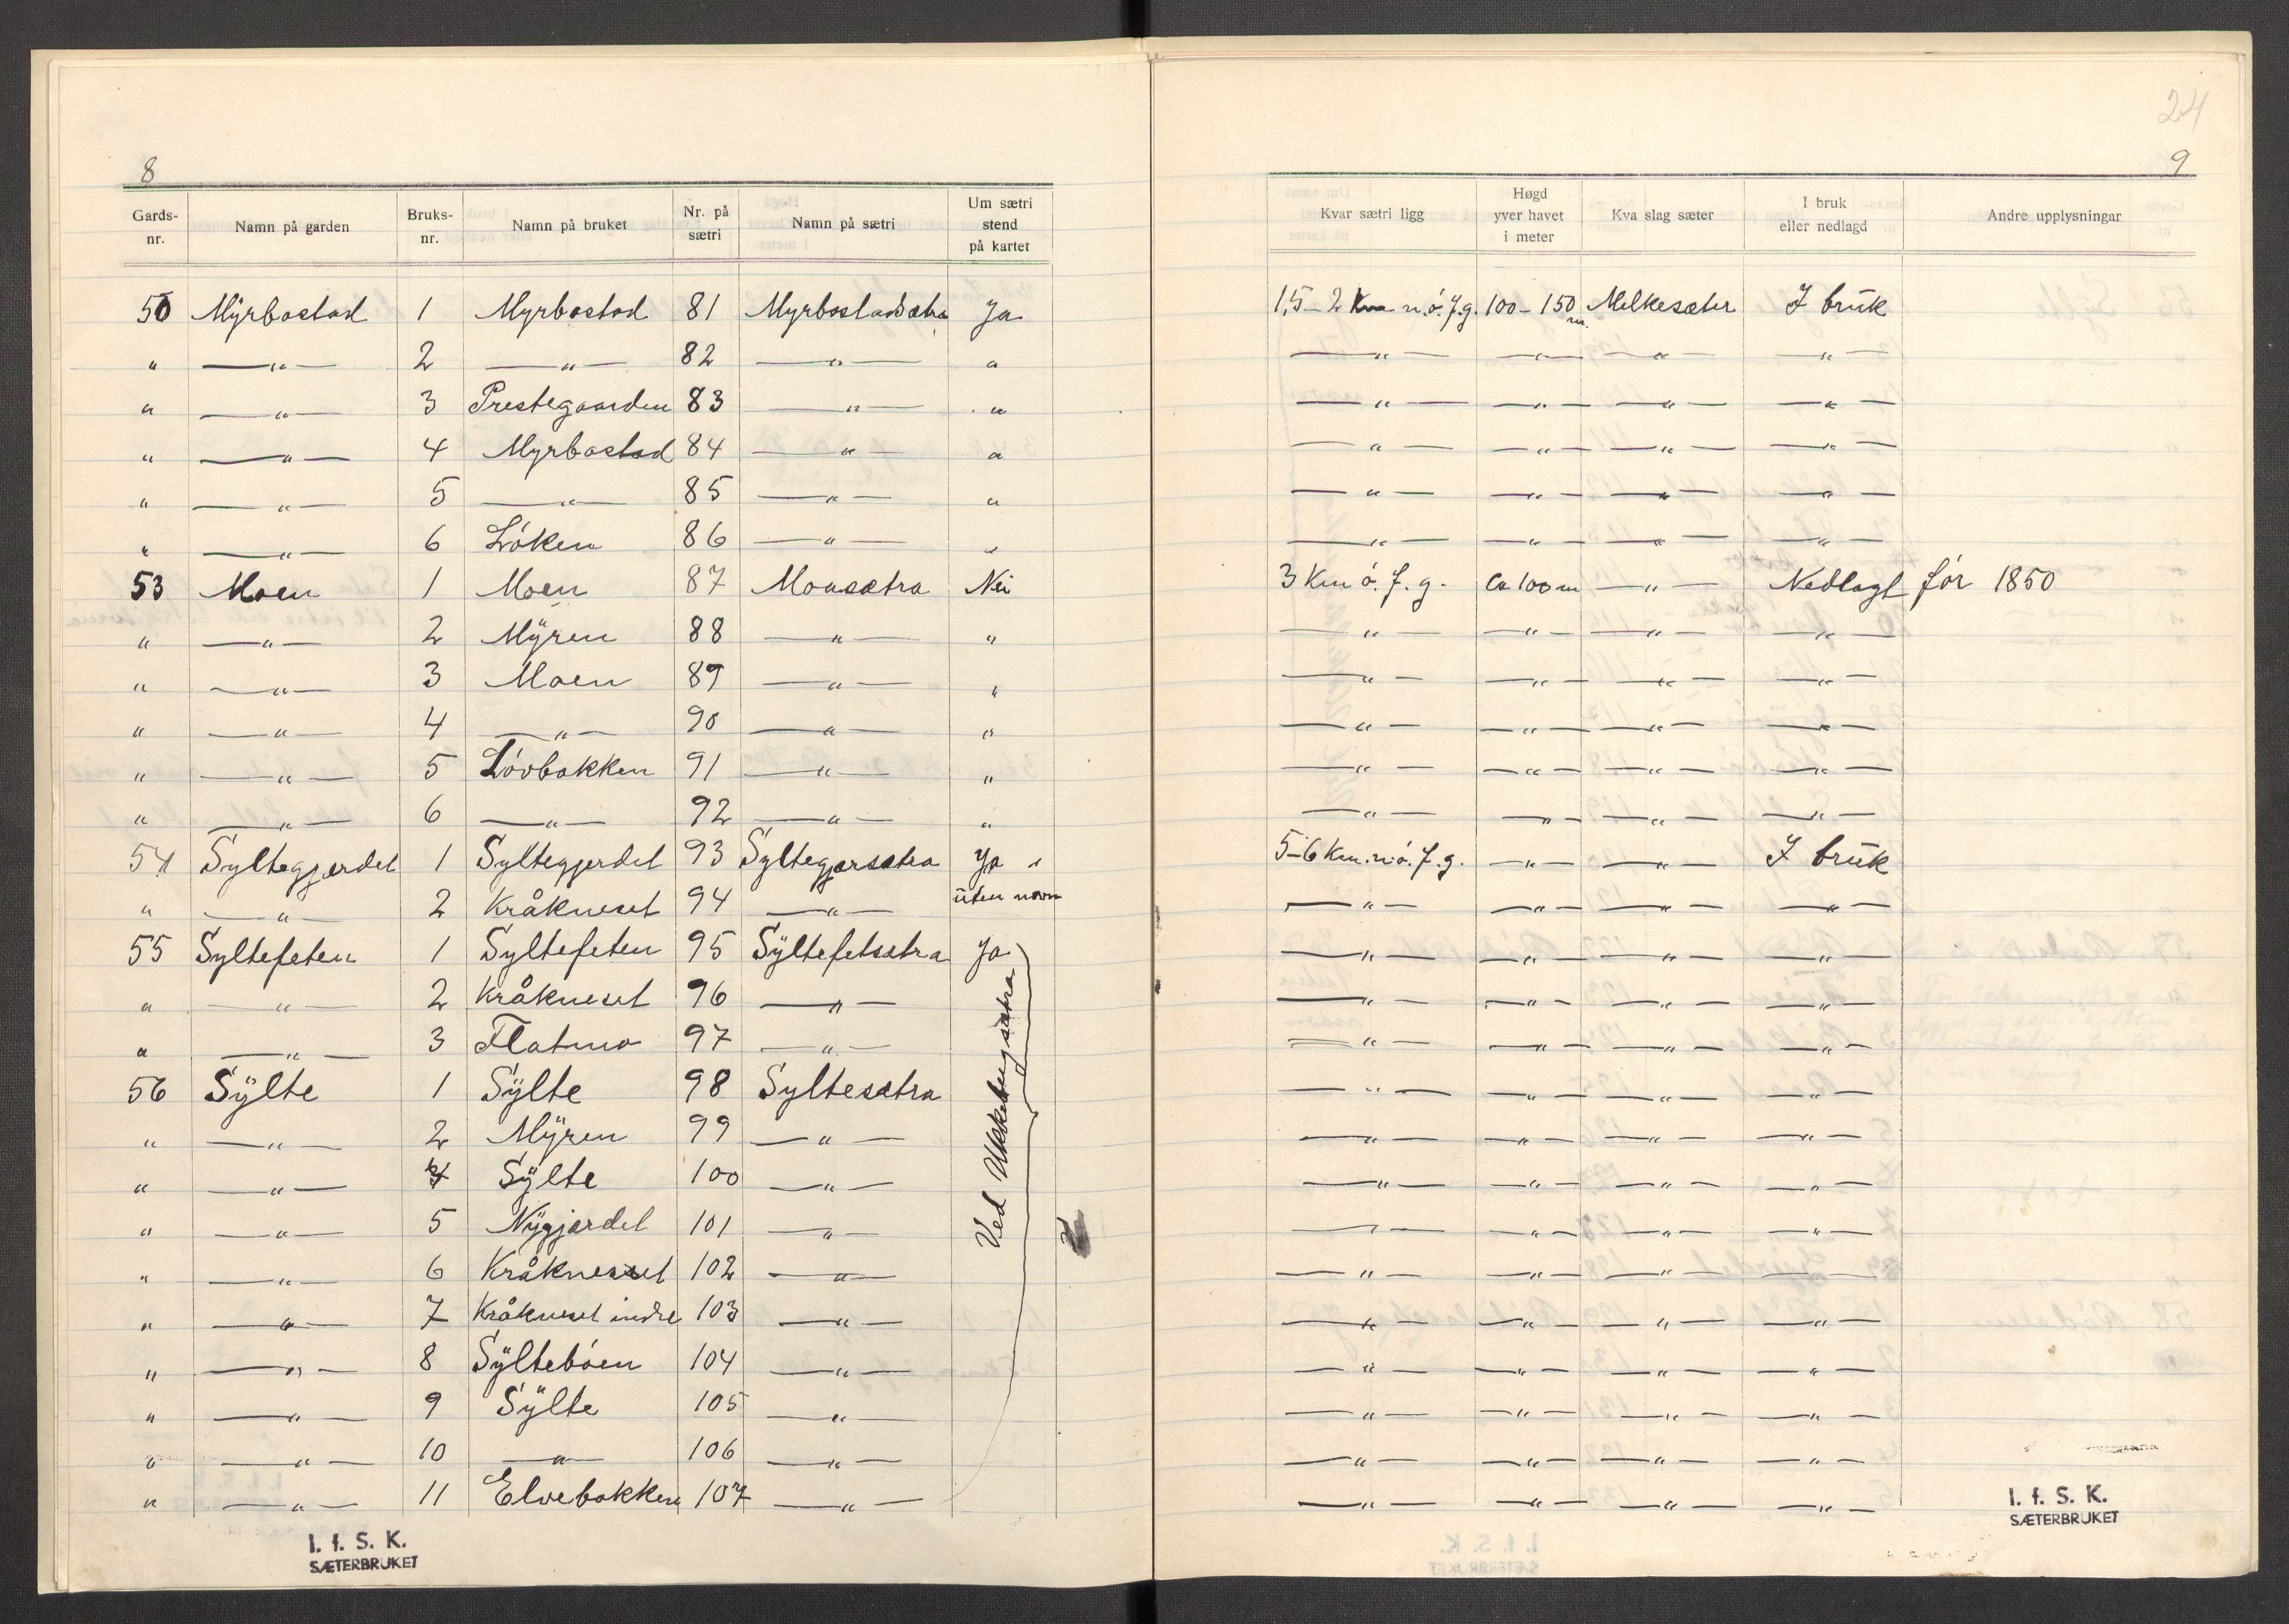 8
Gards-nr. Namn på garden Bruks-nr. Namn på bruket Nr. på sætri Namn på sætri Um sætri stend på kartet
50 Myrbostad 1 Myrbostad 81 Myrbostadsætra Ja
" —"— 2 —"— 82 —"— "
" —"— 3 Prestegaarden 83 —"— "
" —"— 4 Myrbostad 84 —"— "
" —"— 5 —"— 85 —"— "
" —"— 6 Löken 86 —"— "
53 Moen 1 Moen 87 Moasætra Nei
" —"— 2 Mÿren 88 —"— "
" —"— 3 Moen 89 —"— "
" —"— 4 —"— 90 —"— "
" —"— 5 Lövbakken 91 —"— "
" —"— 6 —"— 92 —"— "
54 Syltegjerdet 1 Syltegjerdet 93 Syltegjersætra Ja "
" —"— 2 Kråkneset 94 —"— üten navn
55 Syltefeten 1 Syltefeten 95 Sÿltefetsætra Ja
" —"— 2 Kråkneset 96 —"—
" —"— 3 Flatmo 97 —"—
56 Sÿlte 1 Sÿlte 98 Syltesætra
" —"— 2 Mÿren 99 —"—
" —"— 4 Sÿlte 100 —"—
" —"— 5 Nÿgjerdet 101 —"—
" —"— 6 Kråkneset 102 —"—
" —"— 7 Kråkneset indre 103 —"—
" —"— 8 Sÿlteböen 104 —"—
" —"— 9 Sÿlte 105 —"—
" —"— 10 —"— 106 —"—
" —"— 11 Elvebakken 107 —"—
Ved
I. f. S. K.
SÆTERBRUKET
24
9
Kvar sætri ligg Høgd yver havet i meter Kva slag sæter I bruk eller nedlagd Andre upplysningar
1,5-2 Km n.ö.f.g. 100-150 m. Melkesæter I brük
—"— —"— —"— —"—
—"— —"— —"— —"—
—"— —"— —"— —"—
—"— —"— —"— —"—
—"— —"— —"— —"—
3 Km ö. f. g. Ca 100 m —"— Nedlagt för 1850
—"— —"— —"— —"—
—"— —"— —"— —"—
—"— —"— —"— —"—
—"— —"— —"— —"—
—"— —"— —"— —"—
5-6 Km. n.ö. f. g. —"— —"— I brük
—"— —"— —"— —"—
—"— —"— —"— —"—
—"— —"— —"— —"—
—"— —"— —"— —"—
—"— —"— —"— —"—
—"— —"— —"— —"—
—"— —"— —"— —"—
—"— —"— —"— —"—
—"— —"— —"— —"—
—"— —"— —"— —"—
—"— —"— —"— —"—
—"— —"— —"— —"—
—"— —"— —"— —"—
—"— —"— —"— —"—
I. f. S. K.
SÆTERBRUKET